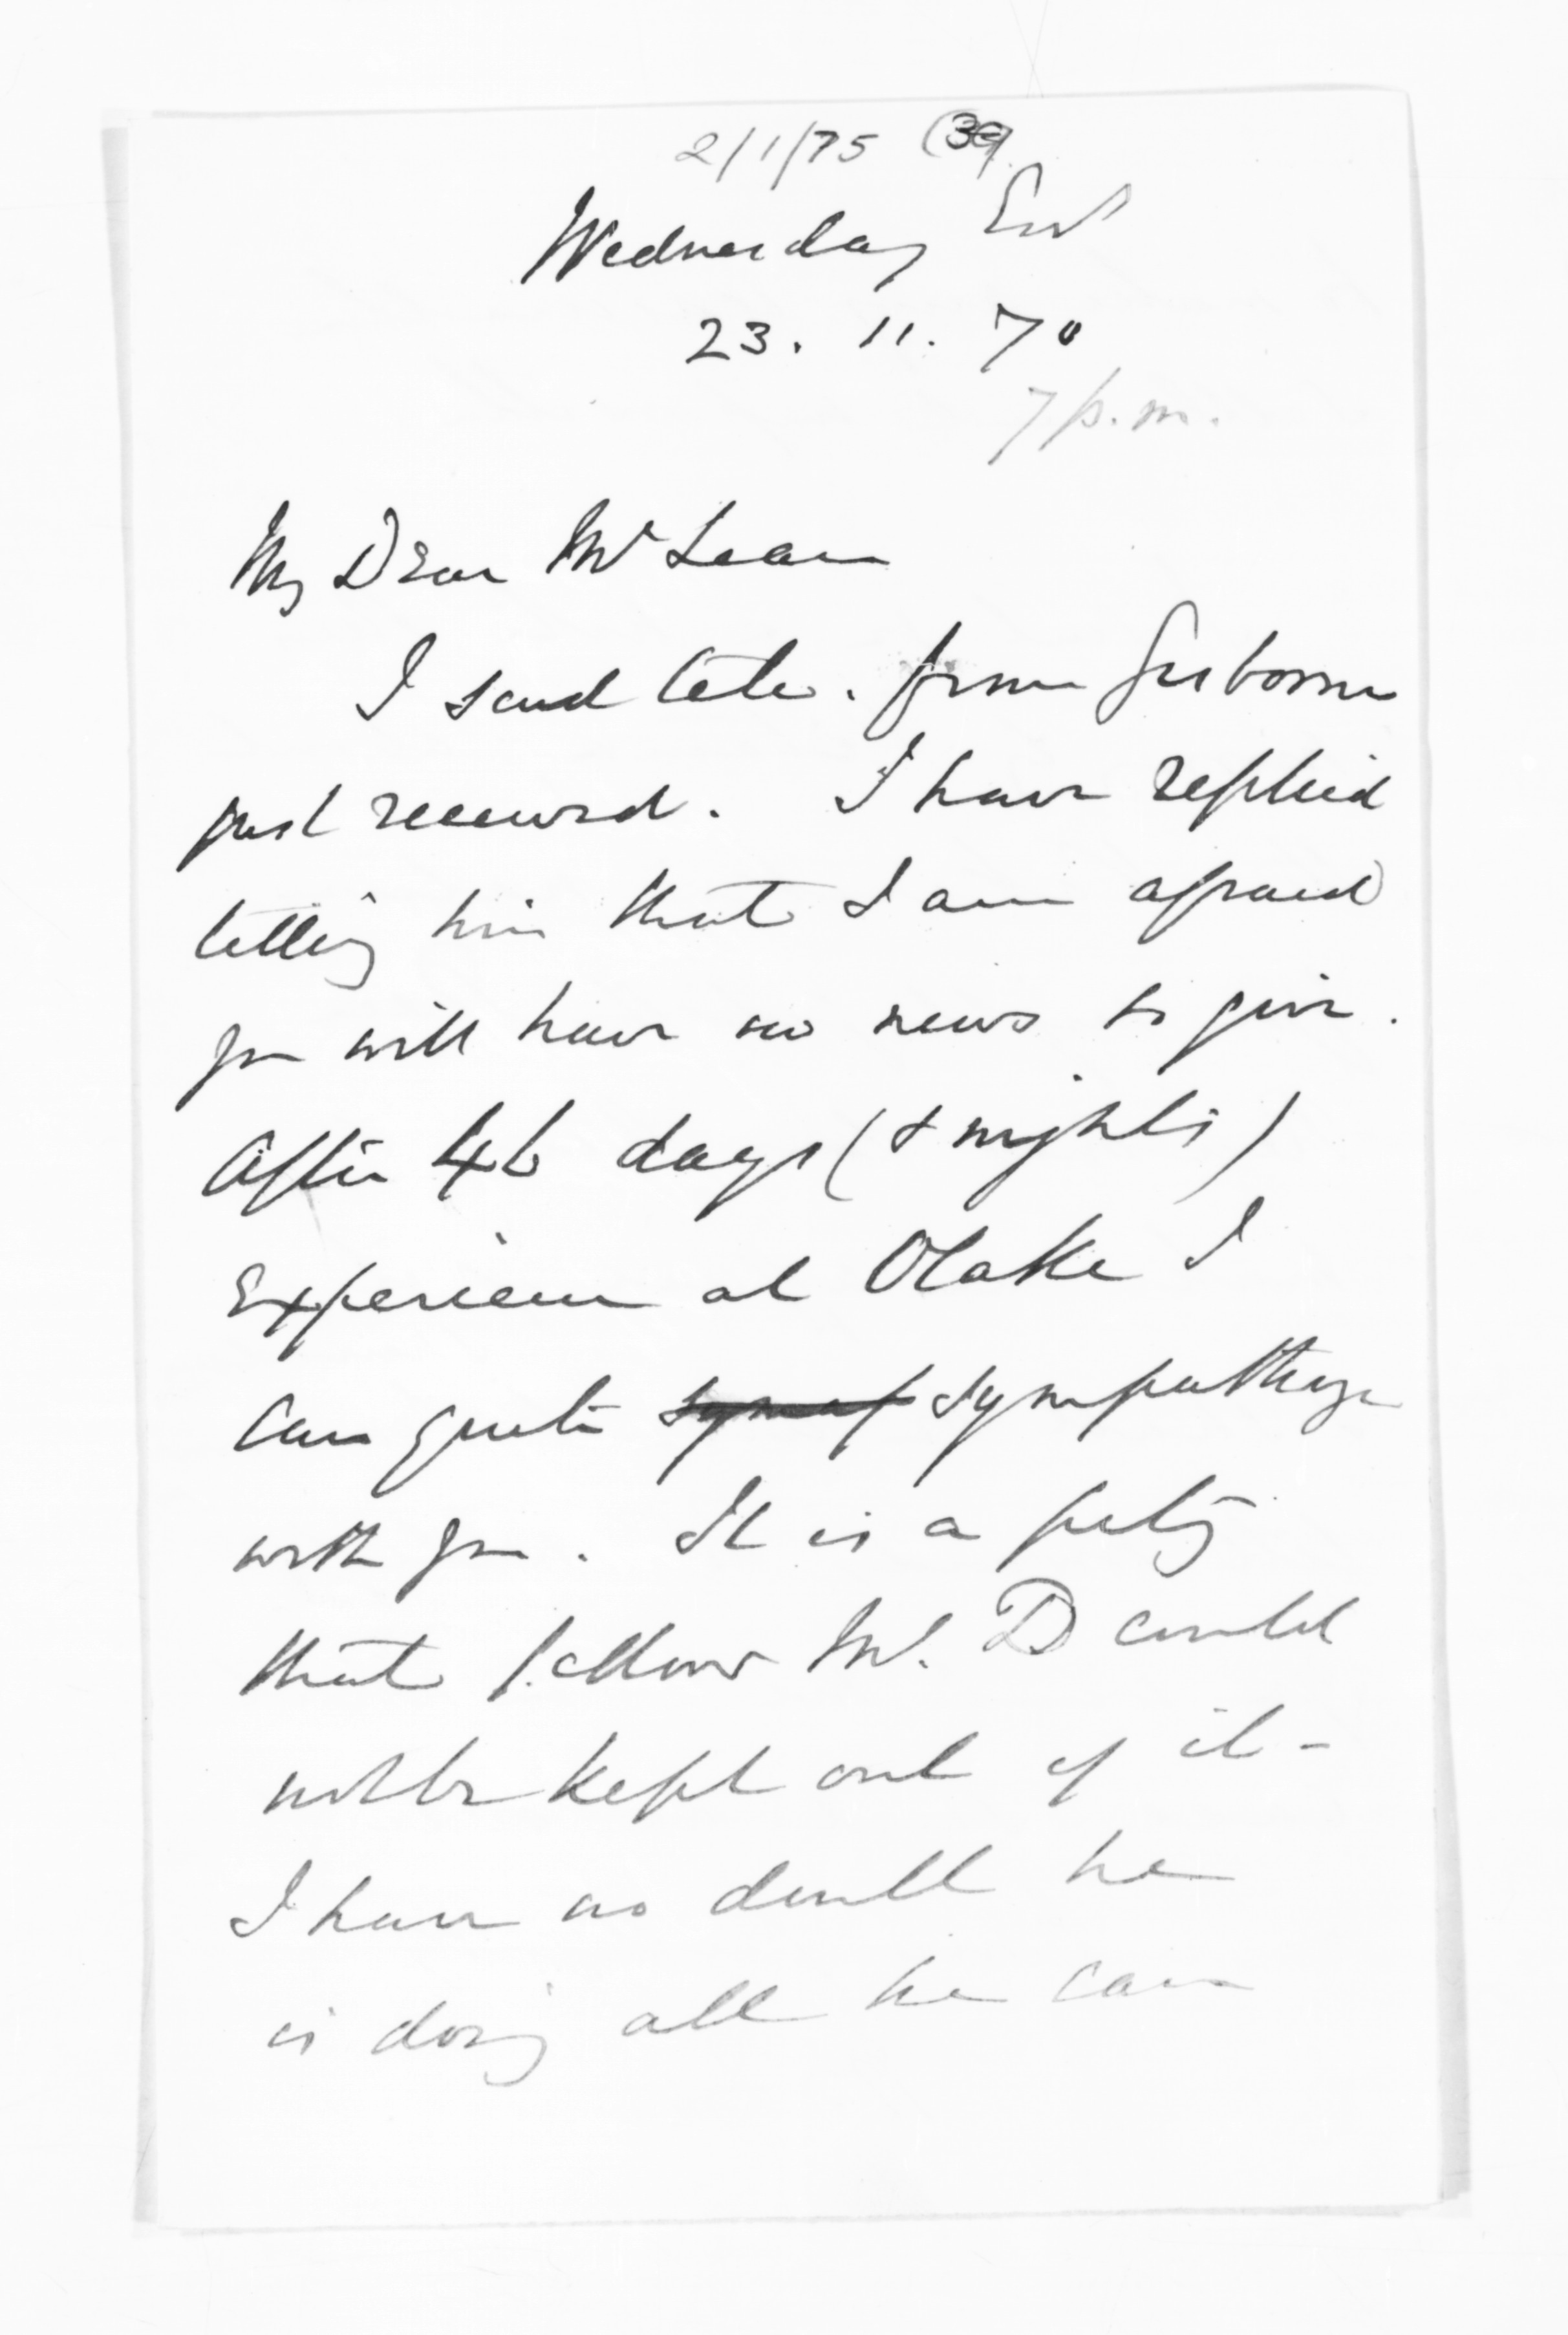 2/1/75 (39)
Wednesday Evg
23. 11. 70
7 p.m.
My Dear McLean
I send tele. from Gisborne
just received. I have replied
telling him that I am afraid
you will have no news to give.
After 46 days (& nights)
Experience at Otaki I
can quite symp sympathize
with you. It is a pity
that fellow Mc. D could
not be kept out of it -
I have no doubt he
is doing all he can